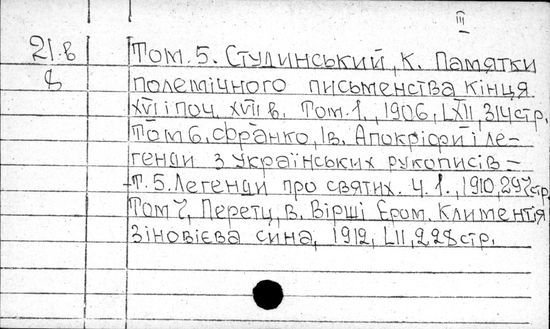 III
21.в Том. 5. Студинський, К. Памятки
8 полемічного письменства кінця
XVI і поч. XVII в. Том. 1., 1906, LXII, 314 стр.
Том 6. Франко, Ів. Апокріфи і ле-
генди з українських рукописів –
Т. 5. Легенди про святих. Ч. 1., 1910, 297 стр.
Том 7, Перетц, В. Вірші Єром. Климентія
Зіновієва сина, 1912, LII, 228 стр.